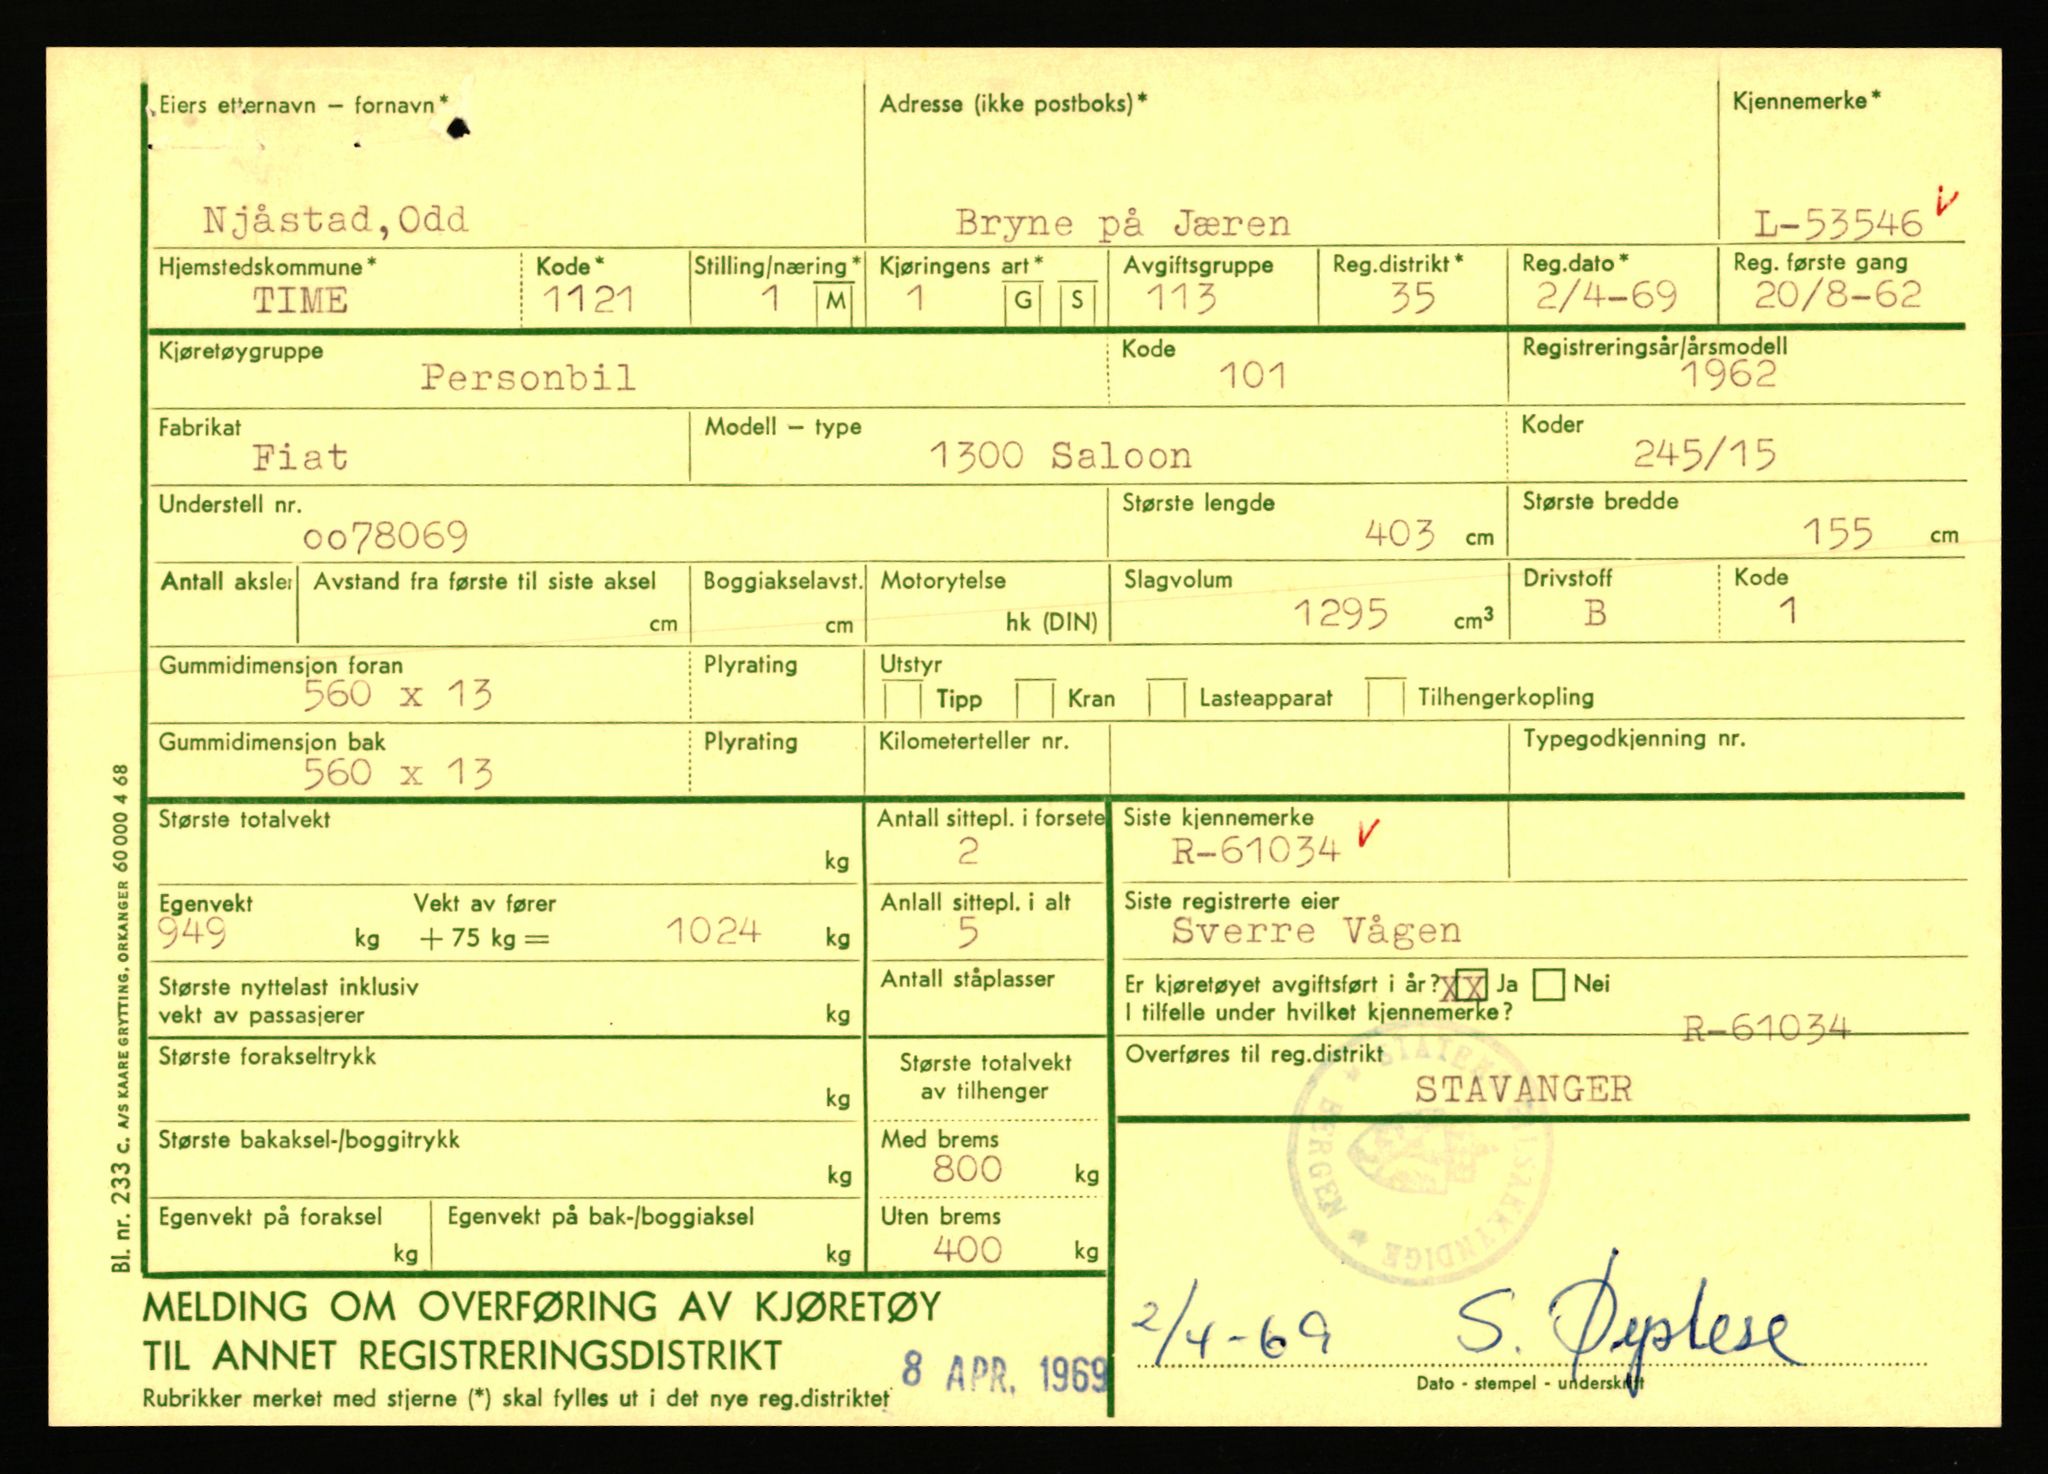 Eiers etternavn – fornavn*
Adresse (ikke postboks)*
Kjennemerke*
Njåstad, Odd
Bryne på Jæren
L-53546
Hjemstedskommune* Kode* Stilling/næring* Kjøringens art* Avgiftsgruppe Reg.distrikt* Reg.dato* Reg. første gang
TIME 1121 1 M 1 G S 113 35 2/4-69 20/8-62
Kjøretøygruppe Kode Registreringsår/årsmodell
Personbil 101 1962
Fabrikat Modell – type Koder
Fiat 1300 Saloon 245/15
Understell nr. Største lengde Største bredde
oo78069 403 cm 155 cm
Antall aksler Avstand fra første til siste aksel Boggiakselavst. Motorytelse Slagvolum Drivstoff Kode
cm cm hk (DIN) 1295 cm³ B 1
Gummidimensjon foran Plyrating Utstyr
560 x 13 Tipp Kran Lasteapparat Tilhengerkopling
Gummidimensjon bak Plyrating Kilometerteller nr. Typegodkjenning nr.
560 x 13
Største totalvekt
kg
Antall sittepl. i forsete
2
Siste kjennemerke
R-61034
Egenvekt Vekt av fører
949 kg + 75 kg = 1024 kg
Anlall sittepl. i alt
5
Siste registrerte eier
Sverre Vågen
Største nyttelast inklusiv
vekt av passasjerer kg
Antall ståplasser
Er kjøretøyet avgiftsført i år? XX Ja Nei
I tilfelle under hvilket kjennemerke?
R-61034
Største forakseltrykk
kg
Største totalvekt
av tilhenger
Overføres til reg.distrikt
STAVANGER
Største bakaksel-/boggitrykk
kg
Med brems
800 kg
Egenvekt på foraksel Egenvekt på bak-/boggiaksel
kg kg
Uten brems
400 kg
STATENS BILSAKKYNDIGE
BERGEN
MELDING OM OVERFØRING AV KJØRETØY
TIL ANNET REGISTRERINGSDISTRIKT
Rubrikker merket med stjerne (*) skal fylles ut i det nye reg.distriktet
8 APR. 1969
2/4-69 S. Øystese
Dato - stempel - underskrift
Bl. nr. 233 c. A/S KAARE GRYTTING, ORKANGER 60 000 4 68